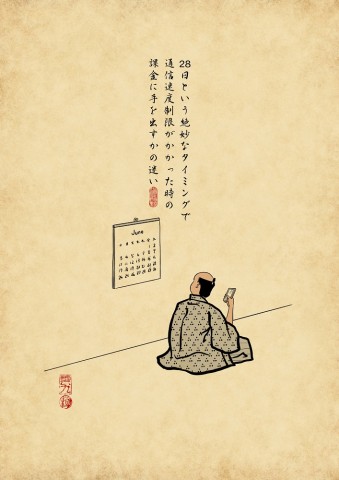 28日という絶妙なタイミングで
通信速度制限がかかった時の
課金に手を出すかの迷い
June